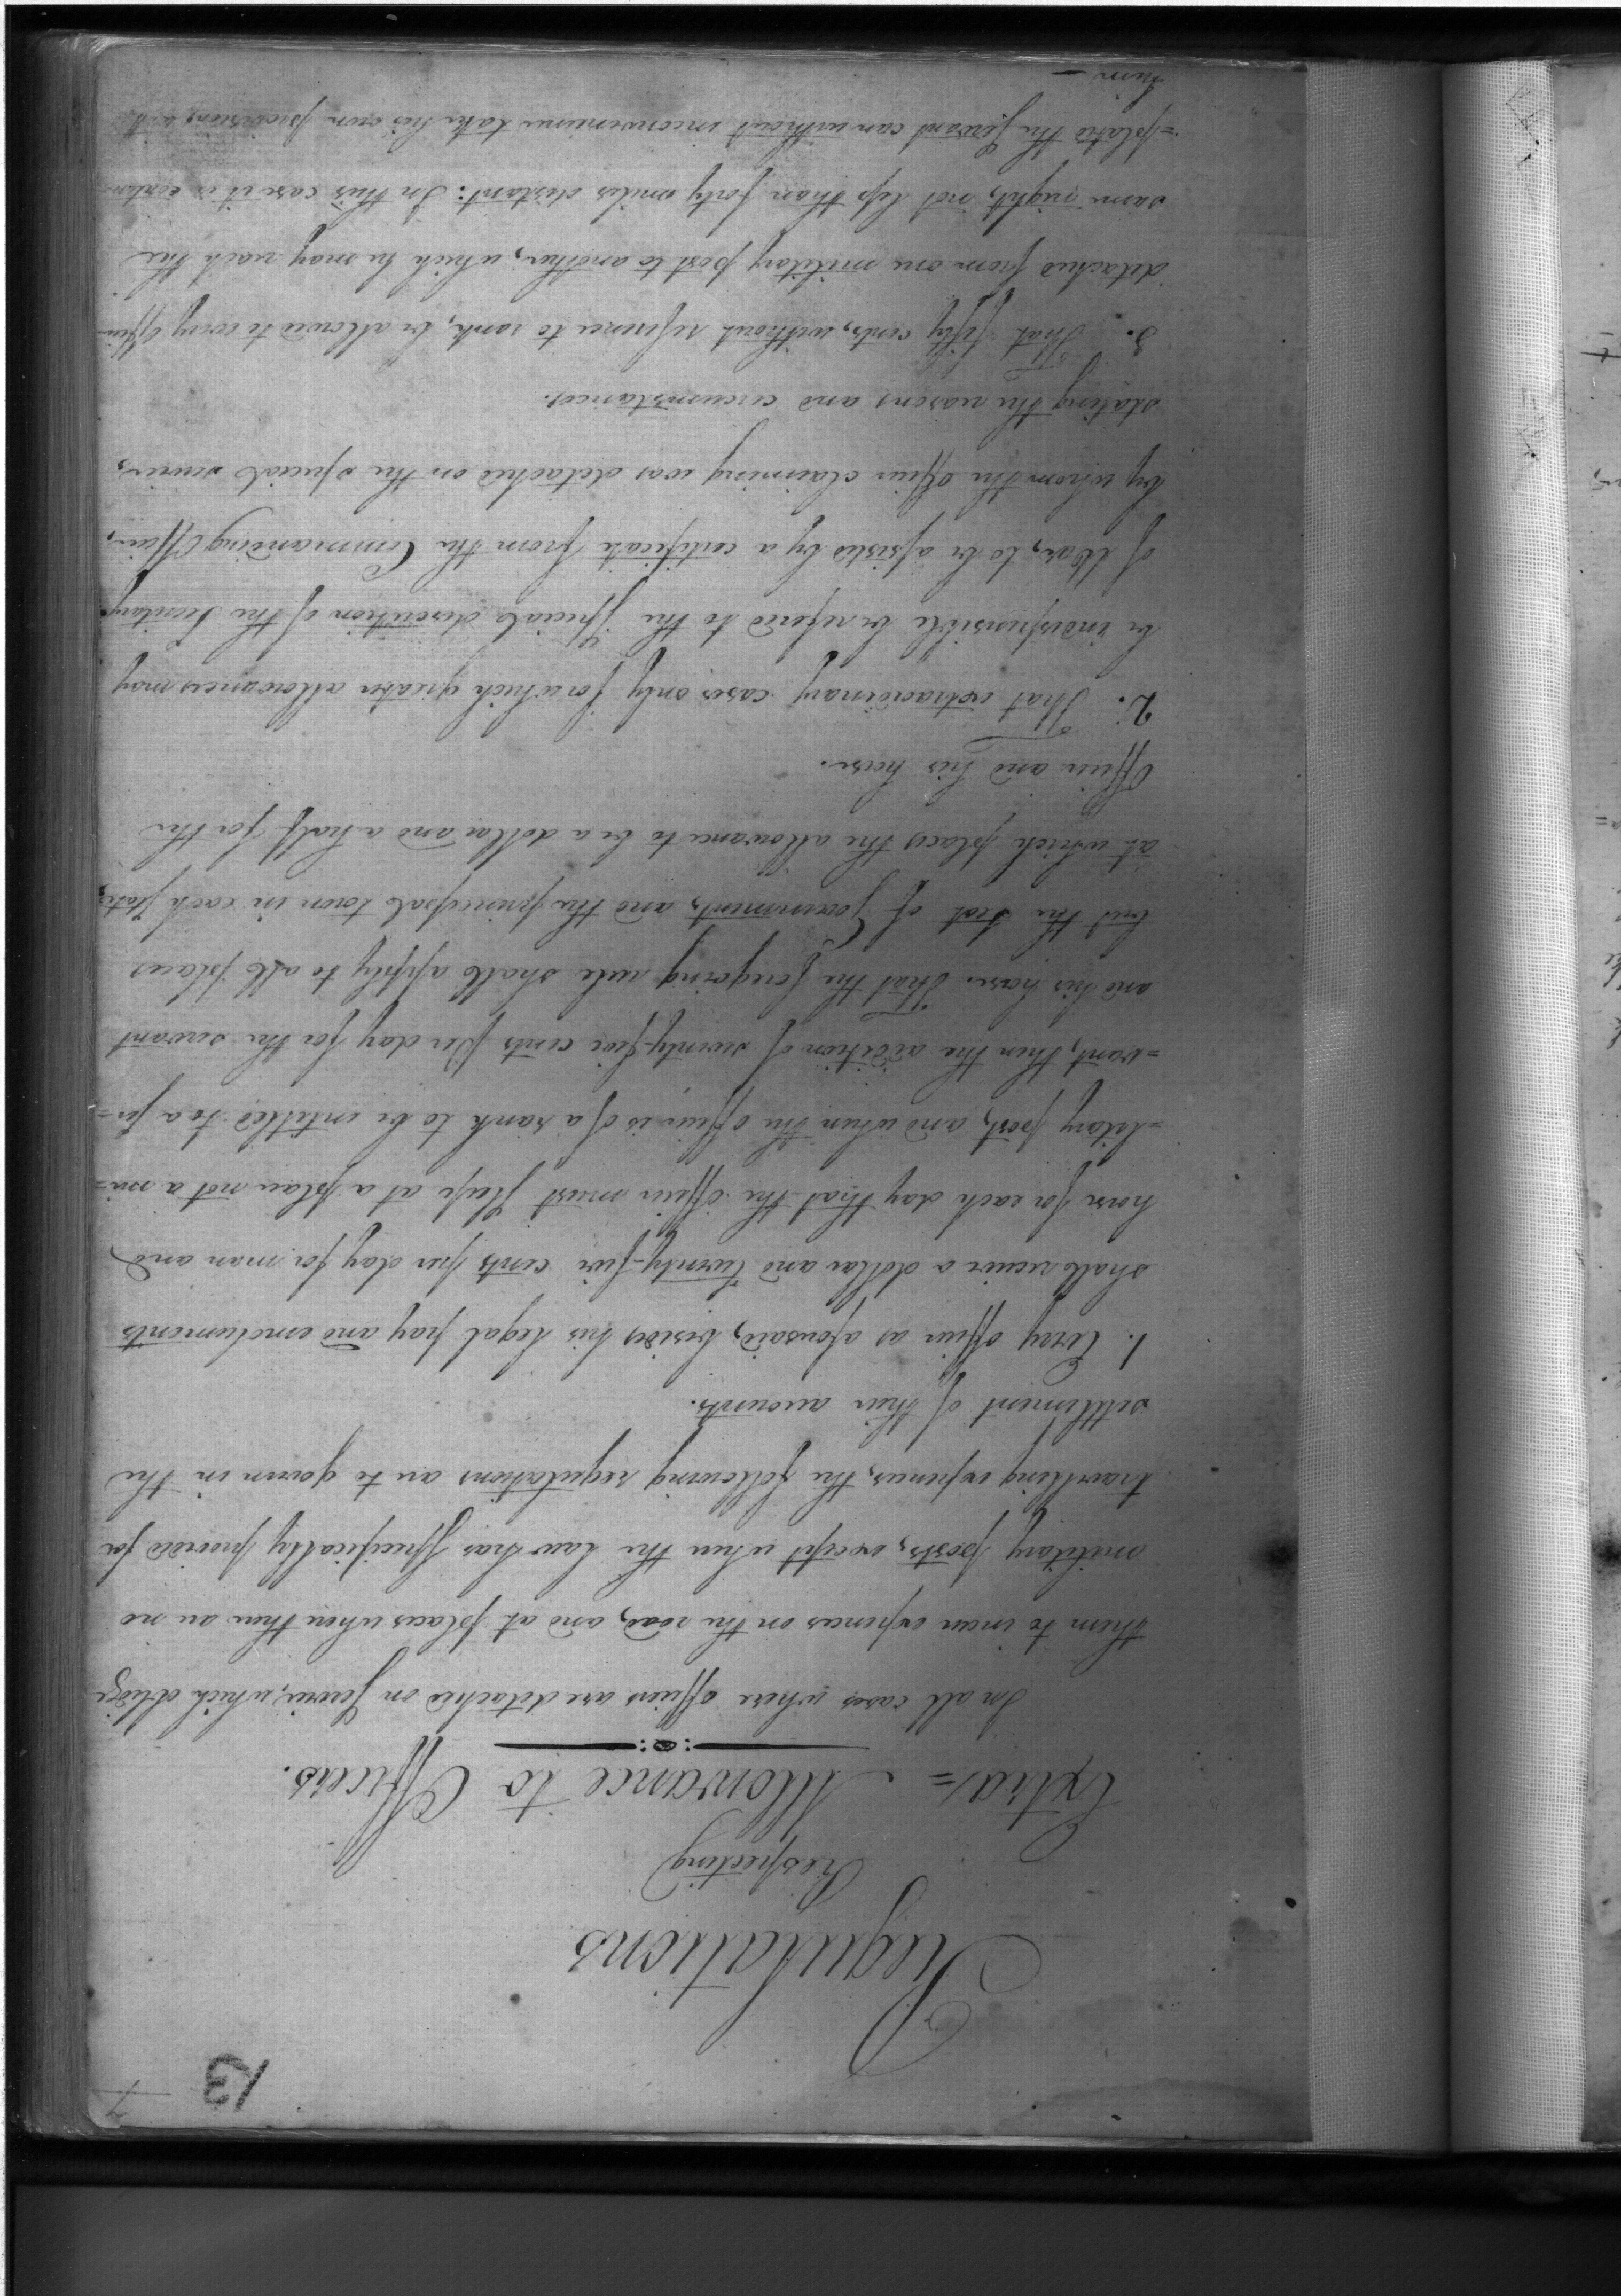 7
13
Regulations
Respecting
Extra = Allowance to Officers.
In all cases where officers are detached on Service, which oblige
them to incur expences on the road, and at places where there are no
military posts, except when the law has specifically provided for
travelling expences, the following regulations are to govern in the
settlement of their accounts.
1. Every officer as aforesaid, besides his legal pay and emoluments
shall receive a dollar and twenty-five cents per day for man and
horse for each day that the officer must sleep at a place not a mi=
=litary post, and when the officer is of a rank to be intitled to a ser=
=vant, then the addition of seventy-five cents per day for the servant
and his horse. That the foregoing rule shall apply to all places
but the seat of Government, and the principal town in each State,
at which places the allowance to be a dollar and a half for the
Officer and his horse.
2. That extraordinary cases only for which greater allowances may
be indispensible be refered to the special discretion of the Secretary
of War, to be assisted by a certificate from the Commanding Officer,
by whom the officer claiming was detached on the special service,
stating the reasons and circumstances.
3. That fifty cents, without reference to rank, be allowed to every Officer
detached from one military post to another, which he may reach the
same night, not less than forty miles distant: In this case it is contem
=plated the Servant can without inconvenience take his own provisions with
him —